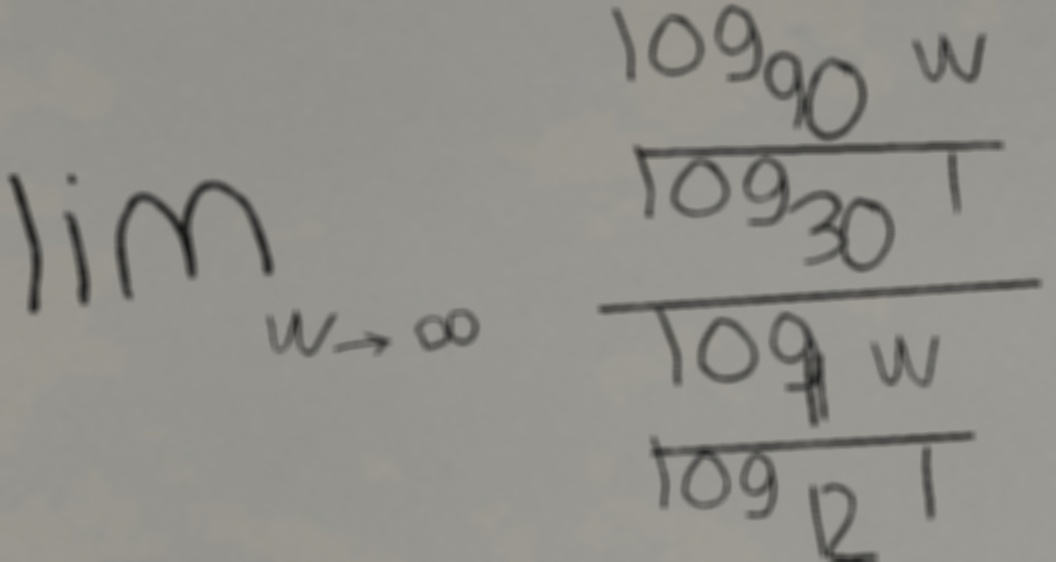 lim w→∞
log₉₀ w
log₃₀ 1
log₁₁ w
log₁₂ 1